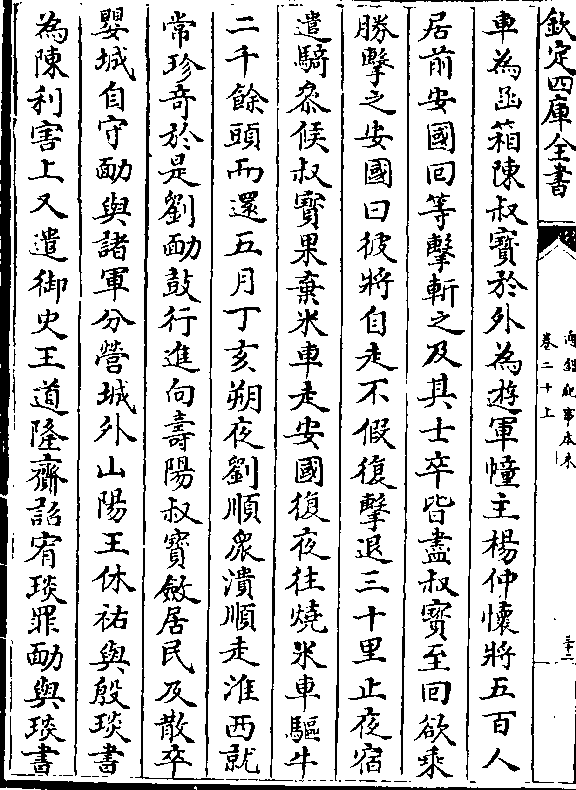 欽定四庫全書
通鑑紀事本末
卷二十上
三十二
車為函箱陳叔寶於外為遊軍幢主楊仲懷將五百人
居前安國回等擊斬之及其士卒皆盡叔寶至回欲乘
勝擊之安國曰彼將自走不假復擊退三十里止夜宿
遣騎參候叔寶果棄米車走安國復夜往燒米車驅牛
二千餘頭而還五月丁亥朔夜劉順衆潰順走淮西就
常珍奇於是劉勔鼓行進向壽陽叔寶斂居民及散卒
嬰城自守勔與諸軍分營城外山陽王休祐與殷琰書
為陳利害上又遣御史王道隆齎詔宥琰罪勔與琰書